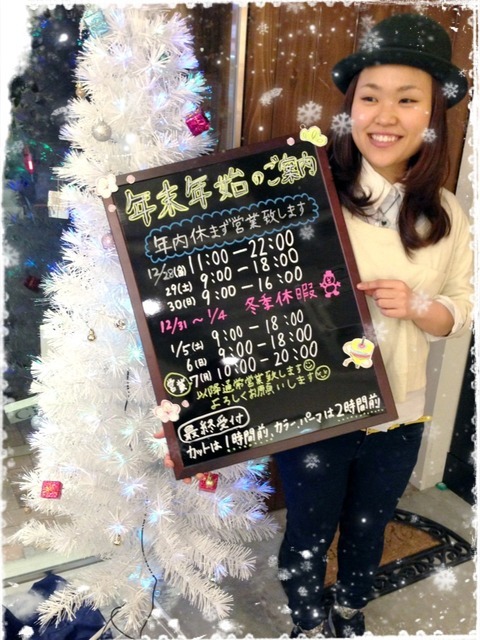 年末年始のご案内
年内休まず営業致します
12/28(金) 11:00－22:00
29(土) 9:00－18:00
30(日) 9:00－16:00
12/31～1/4 冬季休暇
1/5(土) 9:00－18:00
6(日) 9:00－18:00
営業 7(月) 10:00－20:00
以降通常営業致します
よろしくお願いします
最終受付
カットは1時間前、カラー、パーマは2時間前